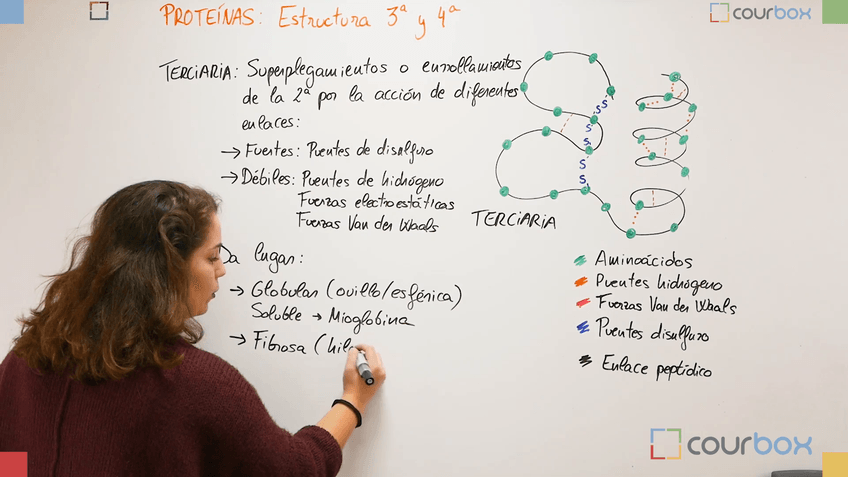 PROTEÍNAS: Estructura 3ª y 4ª
courbox
TERCIARIA: Superplegamientos o enrollamientos
de la 2ª por la acción de diferentes
enlaces:
→ Fuertes: Puentes de disulfuro
→ Débiles: Puentes de hidrógeno
Fuerzas electroestáticas
Fuerzas Van der Waals
Da lugar:
→ Globular (ovillo/esférica)
Soluble → Mioglobina
→ Fibrosa (hil
S
S
S
S
S
S
TERCIARIA
Aminoácidos
Puentes hidrógeno
Fuerzas Van der Waals
Puentes disulfuro
Enlace peptídico
courbox